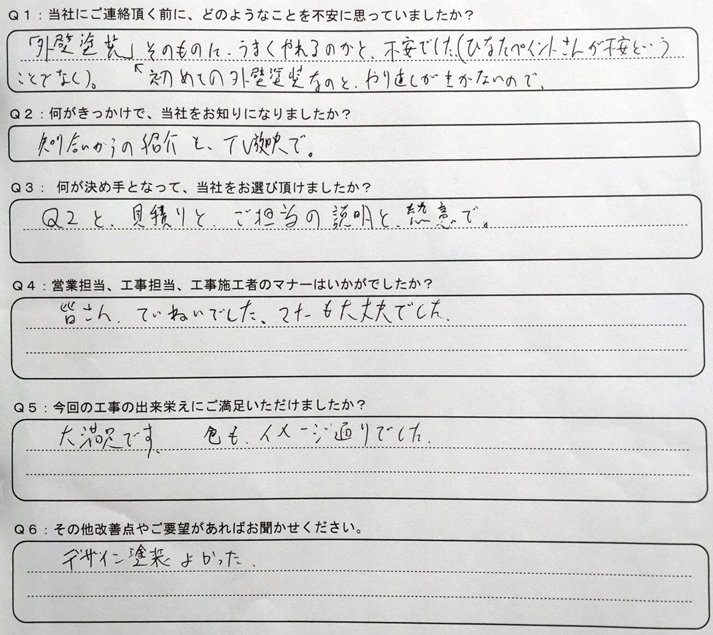 Q1：当社にご連絡頂く前に、どのようなことを不安に思っていましたか？
「外壁塗装」そのものに、うまくやれるのかと、不安でした（ひなたペイントさんが不安という
ことでなく）。 ↖初めての外壁塗装なのと、やり直しがきかないので、
Q2：何がきっかけで、当社をお知りになりましたか？
知り合いからの紹介と、TV放映で。
Q3： 何が決め手となって、当社をお選び頂けましたか？
Q2と、見積りと、ご担当の説明と、熱意で。
Q4：営業担当、工事担当、工事施工者のマナーはいかがでしたか？
皆さん、ていねいでした、マナーも大丈夫でした。
Q5：今回の工事の出来栄えにご満足いただけましたか？
大満足です。 色も、イメージ通りでした。
Q6：その他改善点やご要望があればお聞かせください。
デザイン塗装よかった。